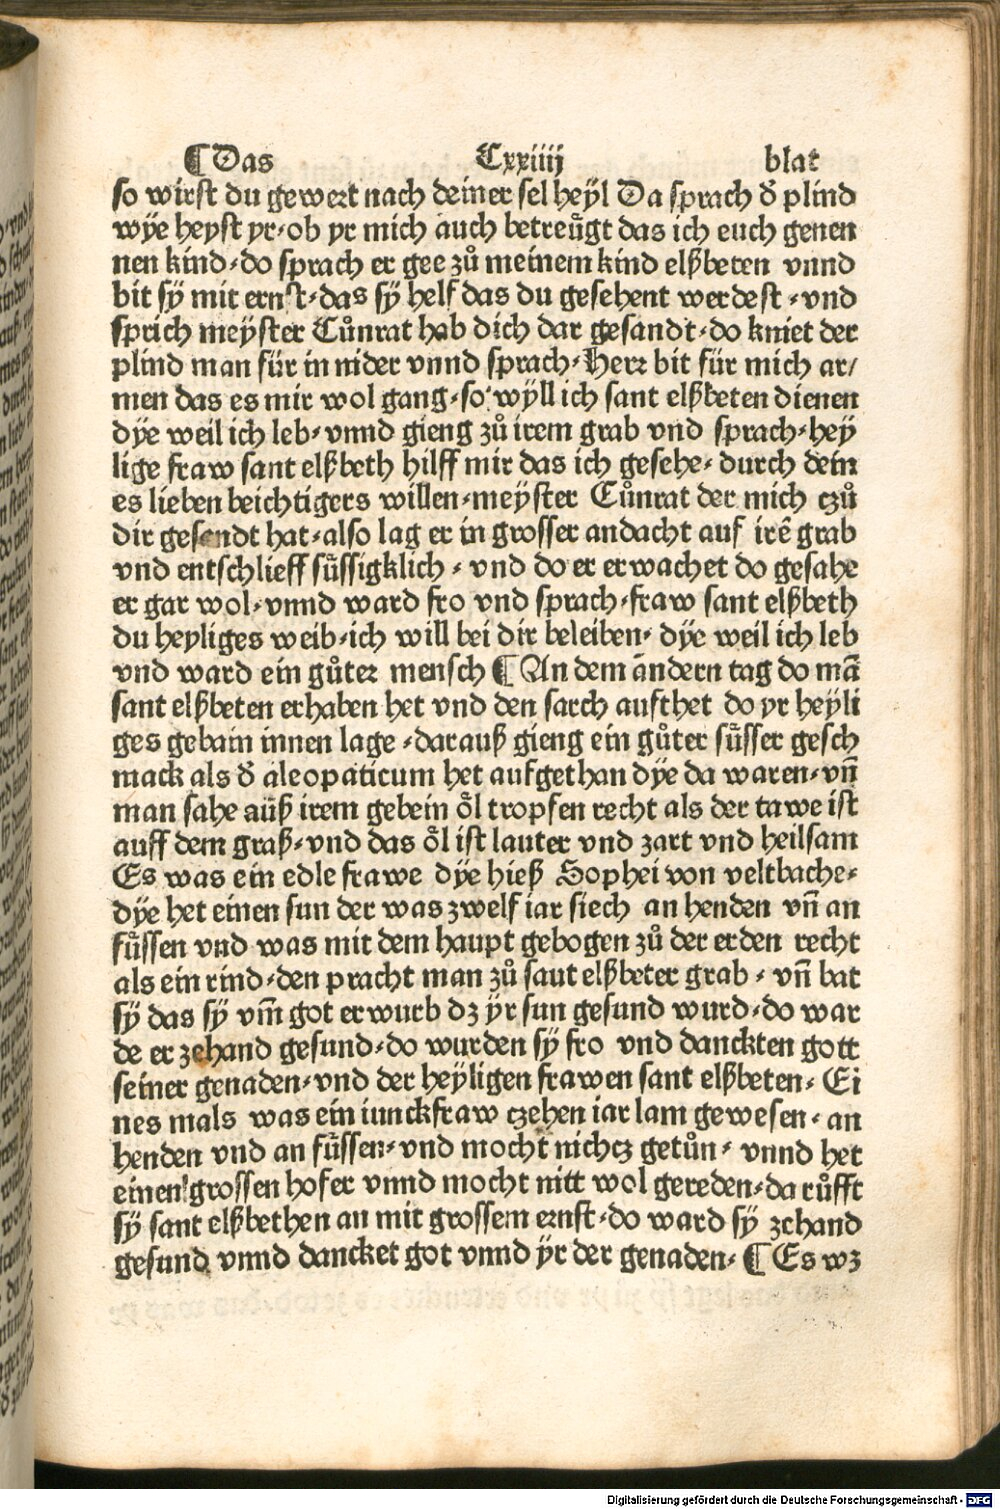 ¶ Das Cxxiiij blat
so wirst du gewert nach deiner sel heyl Da sprach d̕ plind
wÿe heyst yr⸗ob yr mich auch betreu̇gt das ich euch genen
nen kind⸗do sprach er gee zů meinem kind elßbeten vnnd
bit sÿ mit ernst⸗das sÿ helf das du gesehent werdest⸗vnd
sprich meÿster Cůnrat hab dich dar gesandt⸗do kniet der
plind man für in nider vnnd sprach⸗Herr bit für mich ar/
men das es mir wol gang⸗so wÿll ich sant elßbeten dienen
dÿe weil ich leb⸗vnnd gieng zů irem grab vnd sprach⸗heÿ
lige fraw sant elßbeth hilff mir das ich gesehe⸗durch dein
es lieben beichtigers willen⸗meÿster Cůnrat der mich czů
dir gesendt hat⸗also lag er in grosser andacht auf irē grab
vnd entschlieff süssigklich⸗vnd do er erwachet do gesahe
er gar wol⸗vnnd ward fro vnd sprach⸗fraw sant elßbeth
du heyliges weib⸗ich will bei dir beleiben⸗dÿe weil ich leb
vnd ward ein gůter mensch ¶ An dem andern tag do mā
sant elßbeten erhaben het vnd den sarch aufthet do yr heyli
ges gebain innen lage⸗darauß gieng ein gůter süsser gesch
mack als d̕ aleopaticum het aufgethan dÿe da waren⸗vn̄
man sahe auß irem gebein öl tropfen recht als der tawe ist
auff dem graß⸗vnd das öl ist lauter vnd zart vnd heilsam
Es was ein edle frawe dÿe hieß Sophei von veltbache⸗
dÿe het einen sun der was zwelf iar siech an henden vn̄ an
füssen vnd was mit dem haupt gebogen zů der erden recht
als ein rind⸗den pracht man zů saut elßbeter grab⸗vn̄ bat
sÿ das sÿ vm̄ got erwurb dz ÿr sun gesund wurd⸗do war
de er zehand gesund⸗do wurden sÿ fro vnd danckten gott
seiner genaden⸗vnd der heÿligen frawen sant elßbeten⸗Ei
nes mals was ein iunckfraw czehen iar lam gewesen⸗an
henden vnd an füssen⸗vnd mocht nichcz getůn⸗vnnd het
einen grossen hofer vnnd mocht nitt wol gereden⸗da růfft
sÿ sant elßbethen an mit grossem ernst⸗do ward sÿ zehand
gesund vnnd dancket got vnnd ÿr der genaden⸗¶ Es wz
Digitalisierung gefördert durch die Deutsche Forschungsgemeinschaft - DFG